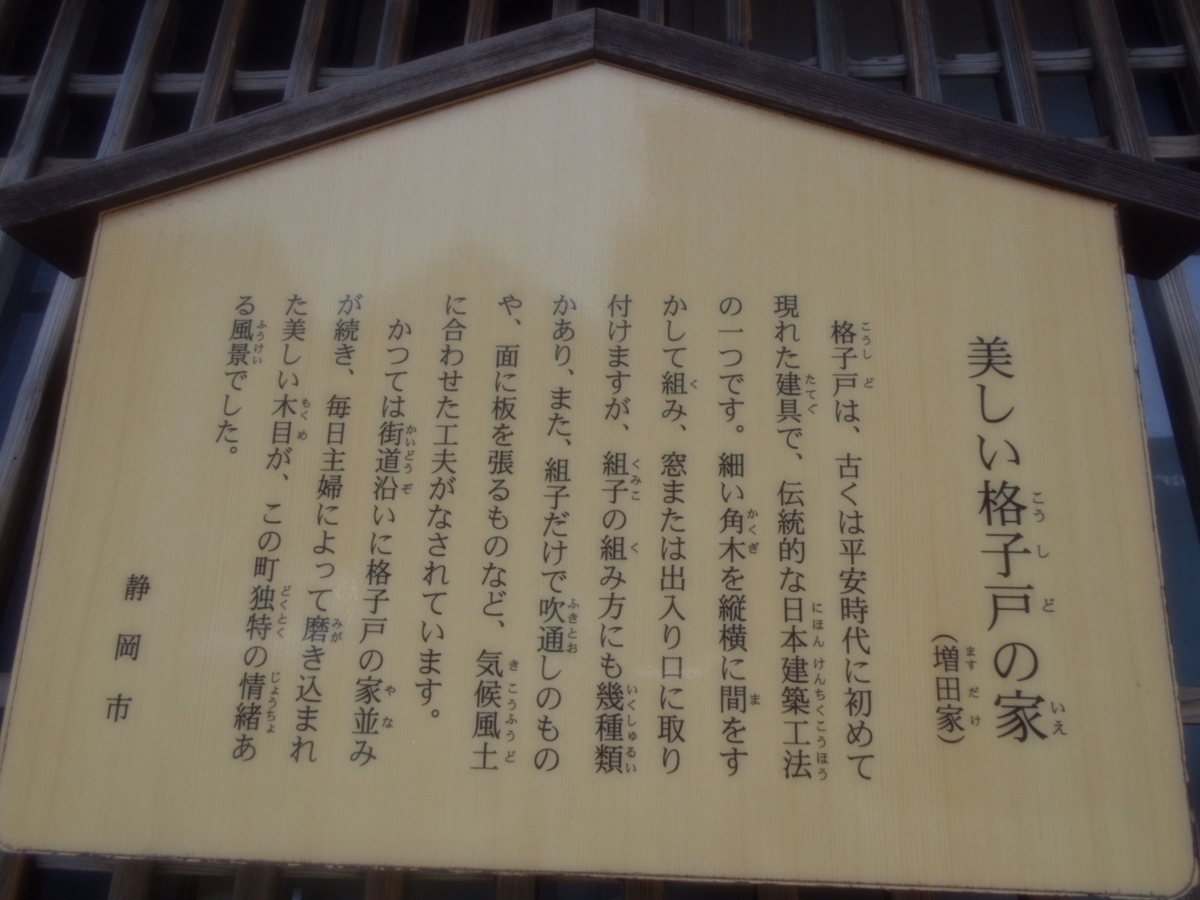 美しい格子戸の家
(増田家)
格子戸は、古くは平安時代に初めて
現れた建具で、伝統的な日本建築工法
の一つです。細い角木を縦横に間をす
かして組み、窓または出入り口に取り
付けますが、組子の組み方にも幾種類
かあり、また、組子だけで吹通しのもの
や、面に板を張るものなど、気候風土
に合わせた工夫がなされています。
かつては街道沿いに格子戸の家並み
が続き、毎日主婦によって磨き込まれ
た美しい木目が、この町独特の情緒あ
る風景でした。
静岡市